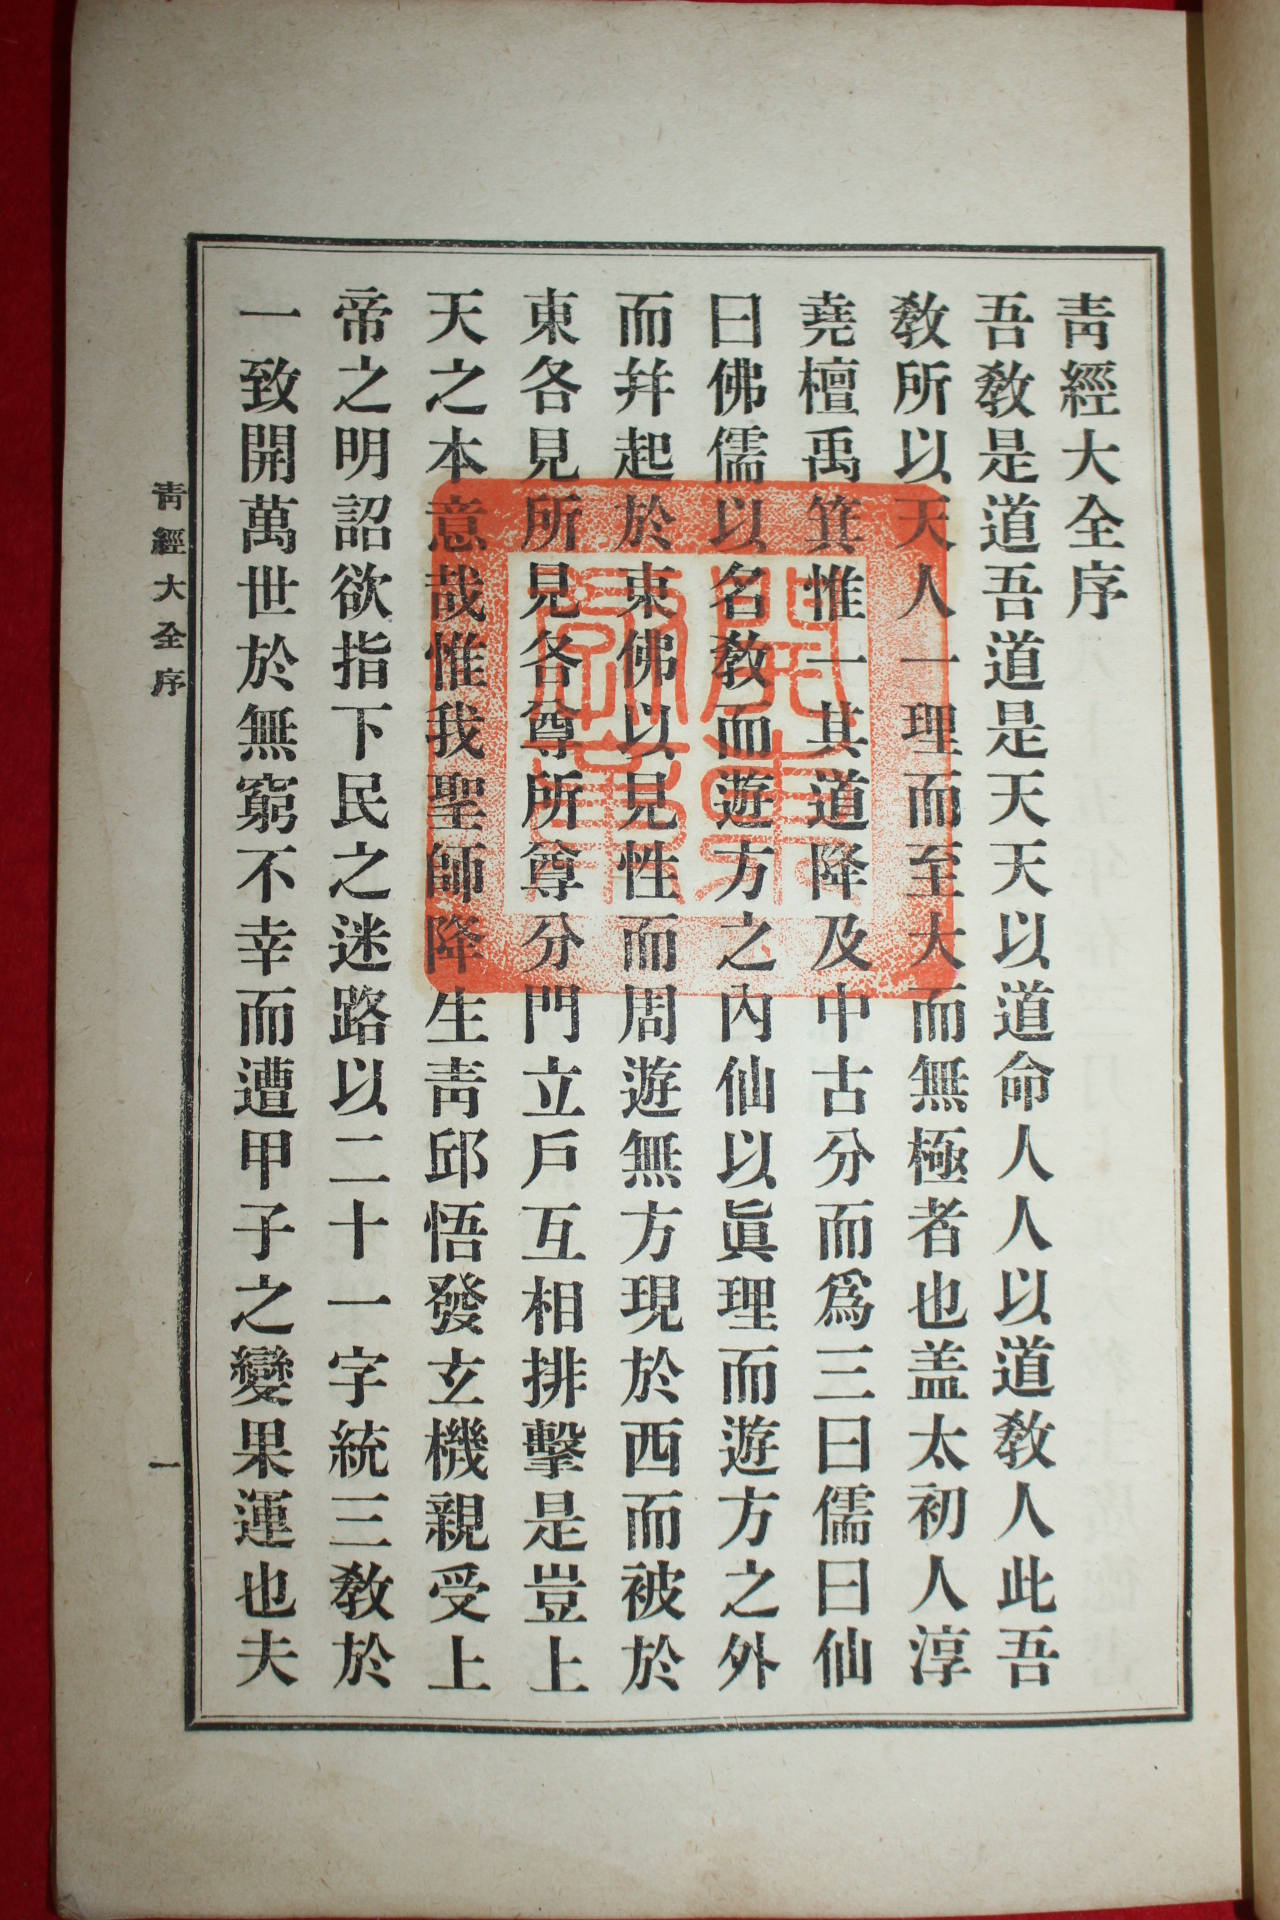 靑經大全序
吾敎是道吾道是天天以道命人人以道敎人此吾
敎所以天人一理而至大而無極者也盖太初人淳
堯檀禹箕惟一其道降及中古分而爲三曰儒曰仙
曰佛儒以名敎而遊方之內仙以眞理而遊方之外
而幷起於東佛以見性而周遊無方現於西而被於
東各見所見各尊所尊分門立戶互相排擊是豈上
天之本意哉惟我聖師降生靑邱悟發玄機親受上
帝之明詔欲指下民之迷路以二十一字統三敎於
一致開萬世於無窮不幸而遭甲子之變果運也夫
靑經大全序
一